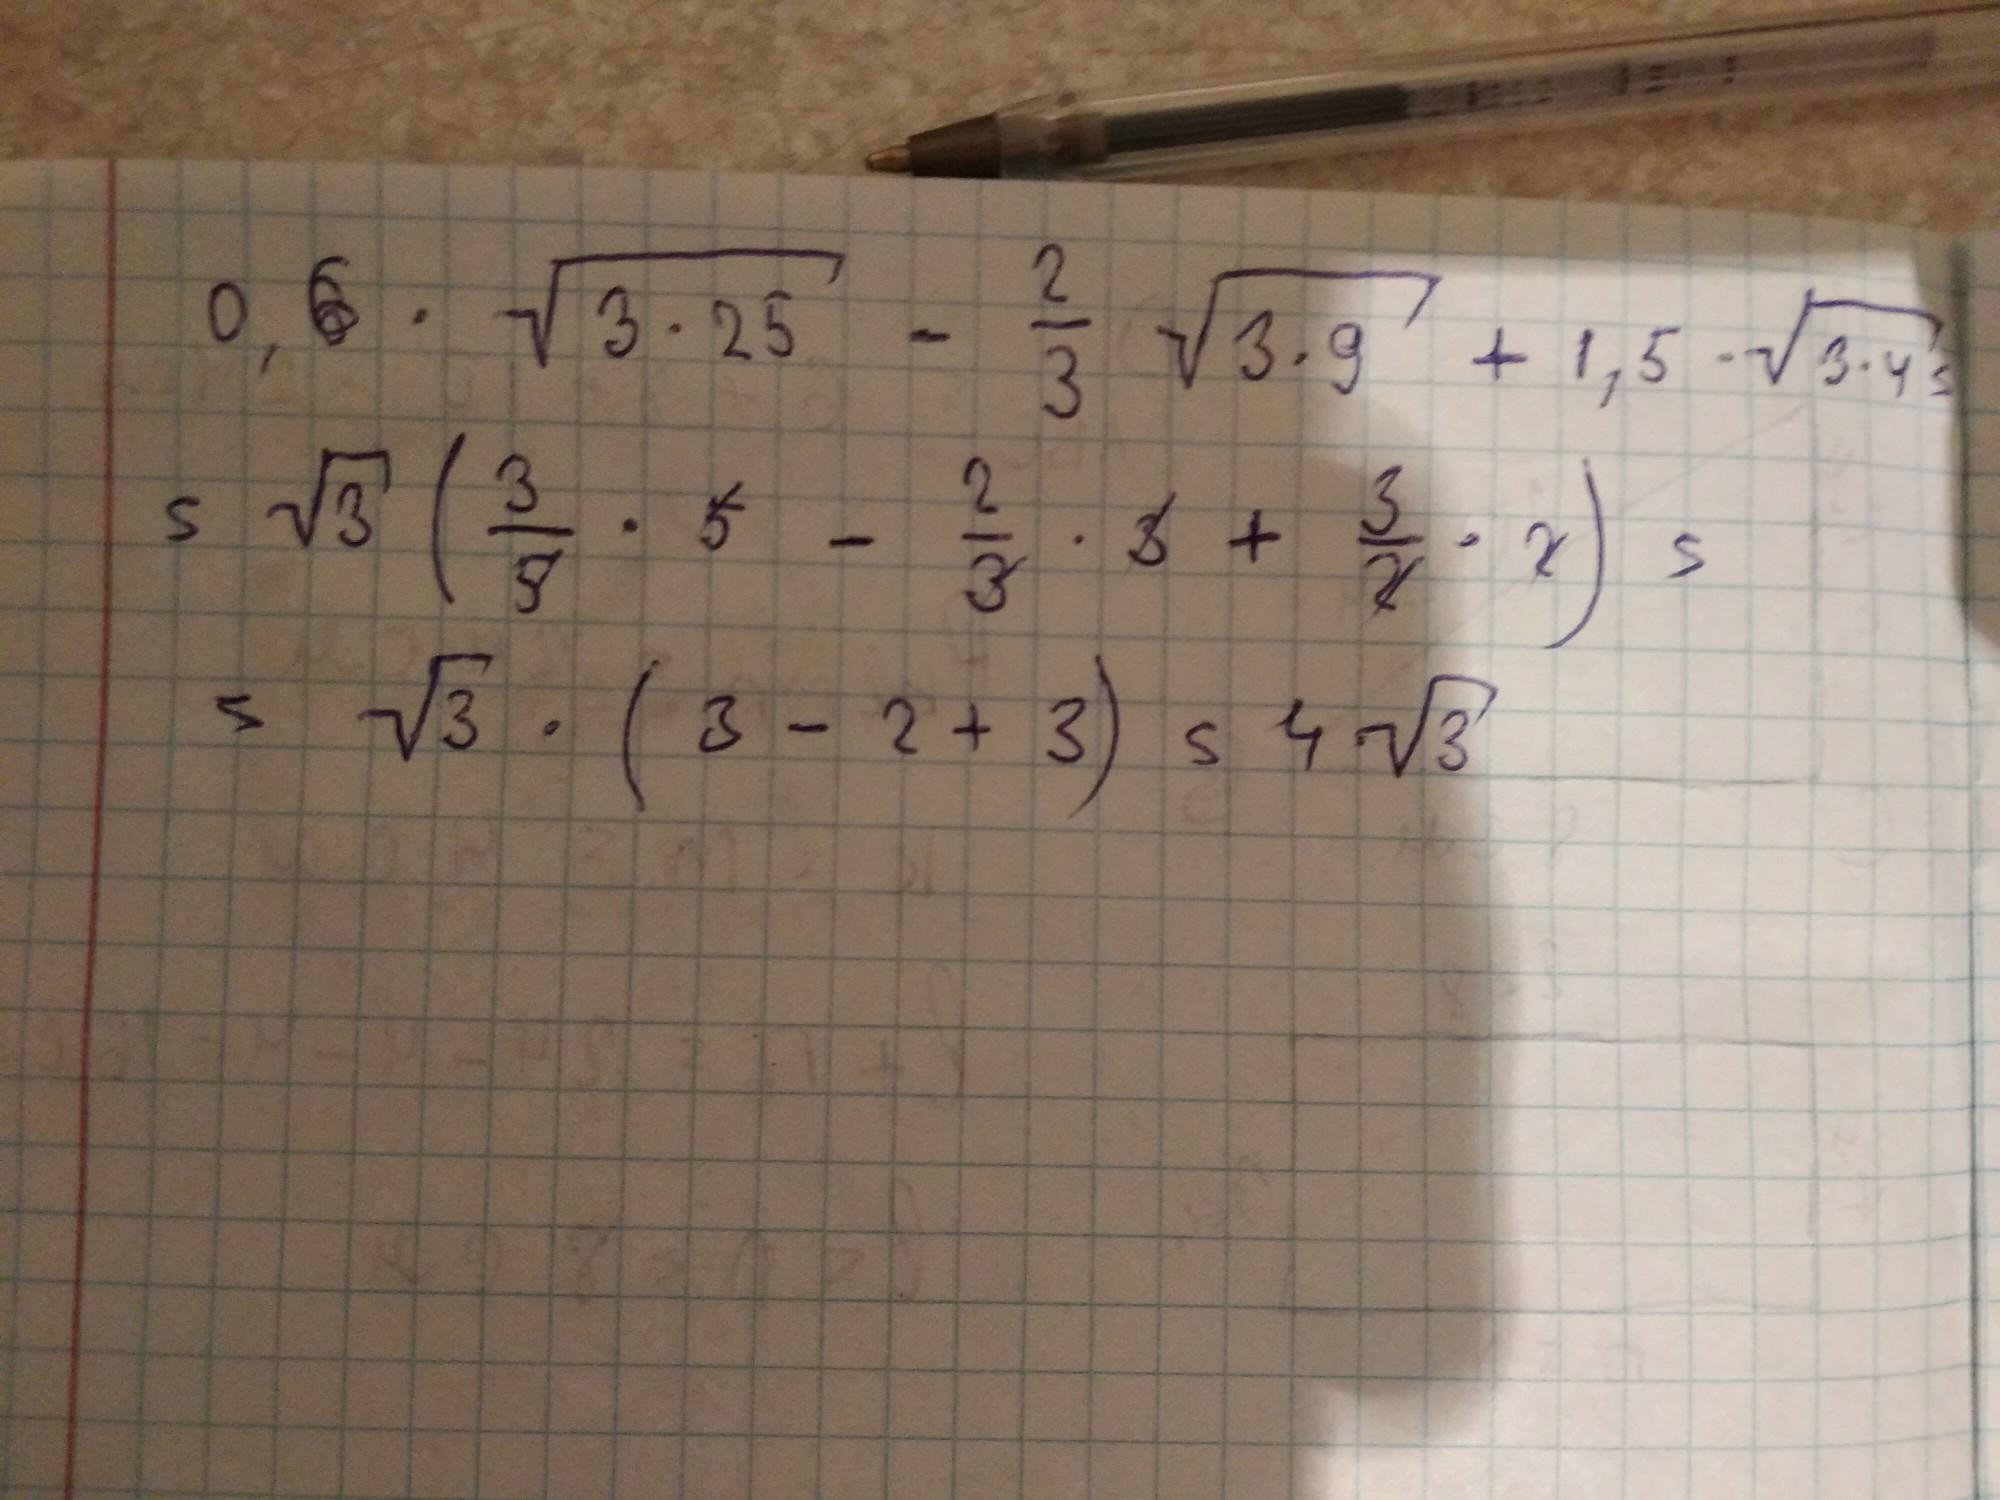 0,6 · √(3·25) - 2/3 √(3·9) + 1,5 · √(3·4) =
= √3 (3/5 · 5 - 2/3 · 3 + 3/2 · 2) =
= √3 · (3 - 2 + 3) = 4√3